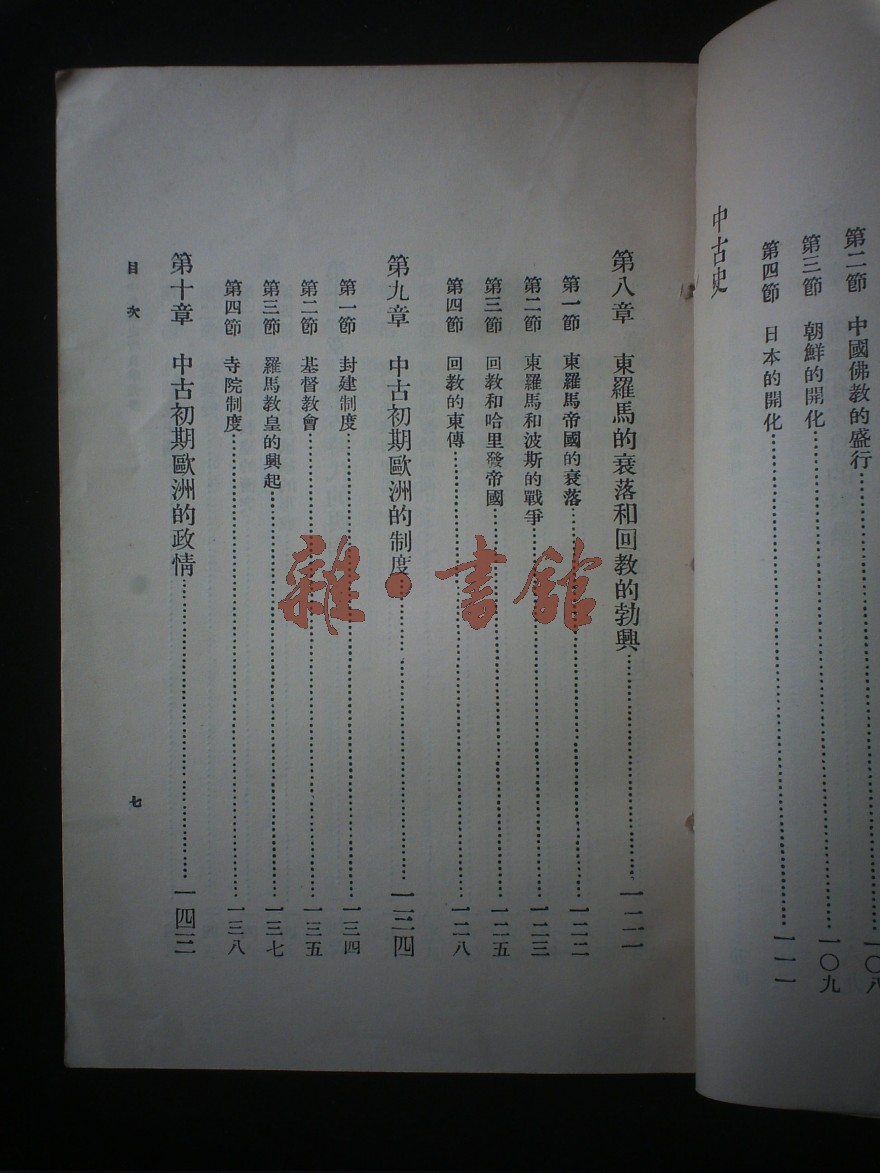 第二節 中國佛教的盛行⋯⋯一〇八
第三節 朝鮮的開化⋯⋯一〇九
第四節 日本的開化⋯⋯一一一
中古史
第八章 東羅馬的衰落和回教的勃興⋯⋯一二一
第一節 東羅馬帝國的衰落⋯⋯一二二
第二節 東羅馬和波斯的戰爭⋯⋯一二三
第三節 回教和哈里發帝國⋯⋯一二五
第四節 回教的東傳⋯⋯一二八
第九章 中古初期歐洲的制度⋯⋯一三四
第一節 封建制度⋯⋯一三四
第二節 基督教會⋯⋯一三五
第三節 羅馬教皇的興起⋯⋯一三七
第四節 寺院制度⋯⋯一三八
第十章 中古初期歐洲的政情⋯⋯一四三
目次
七
雜·書館